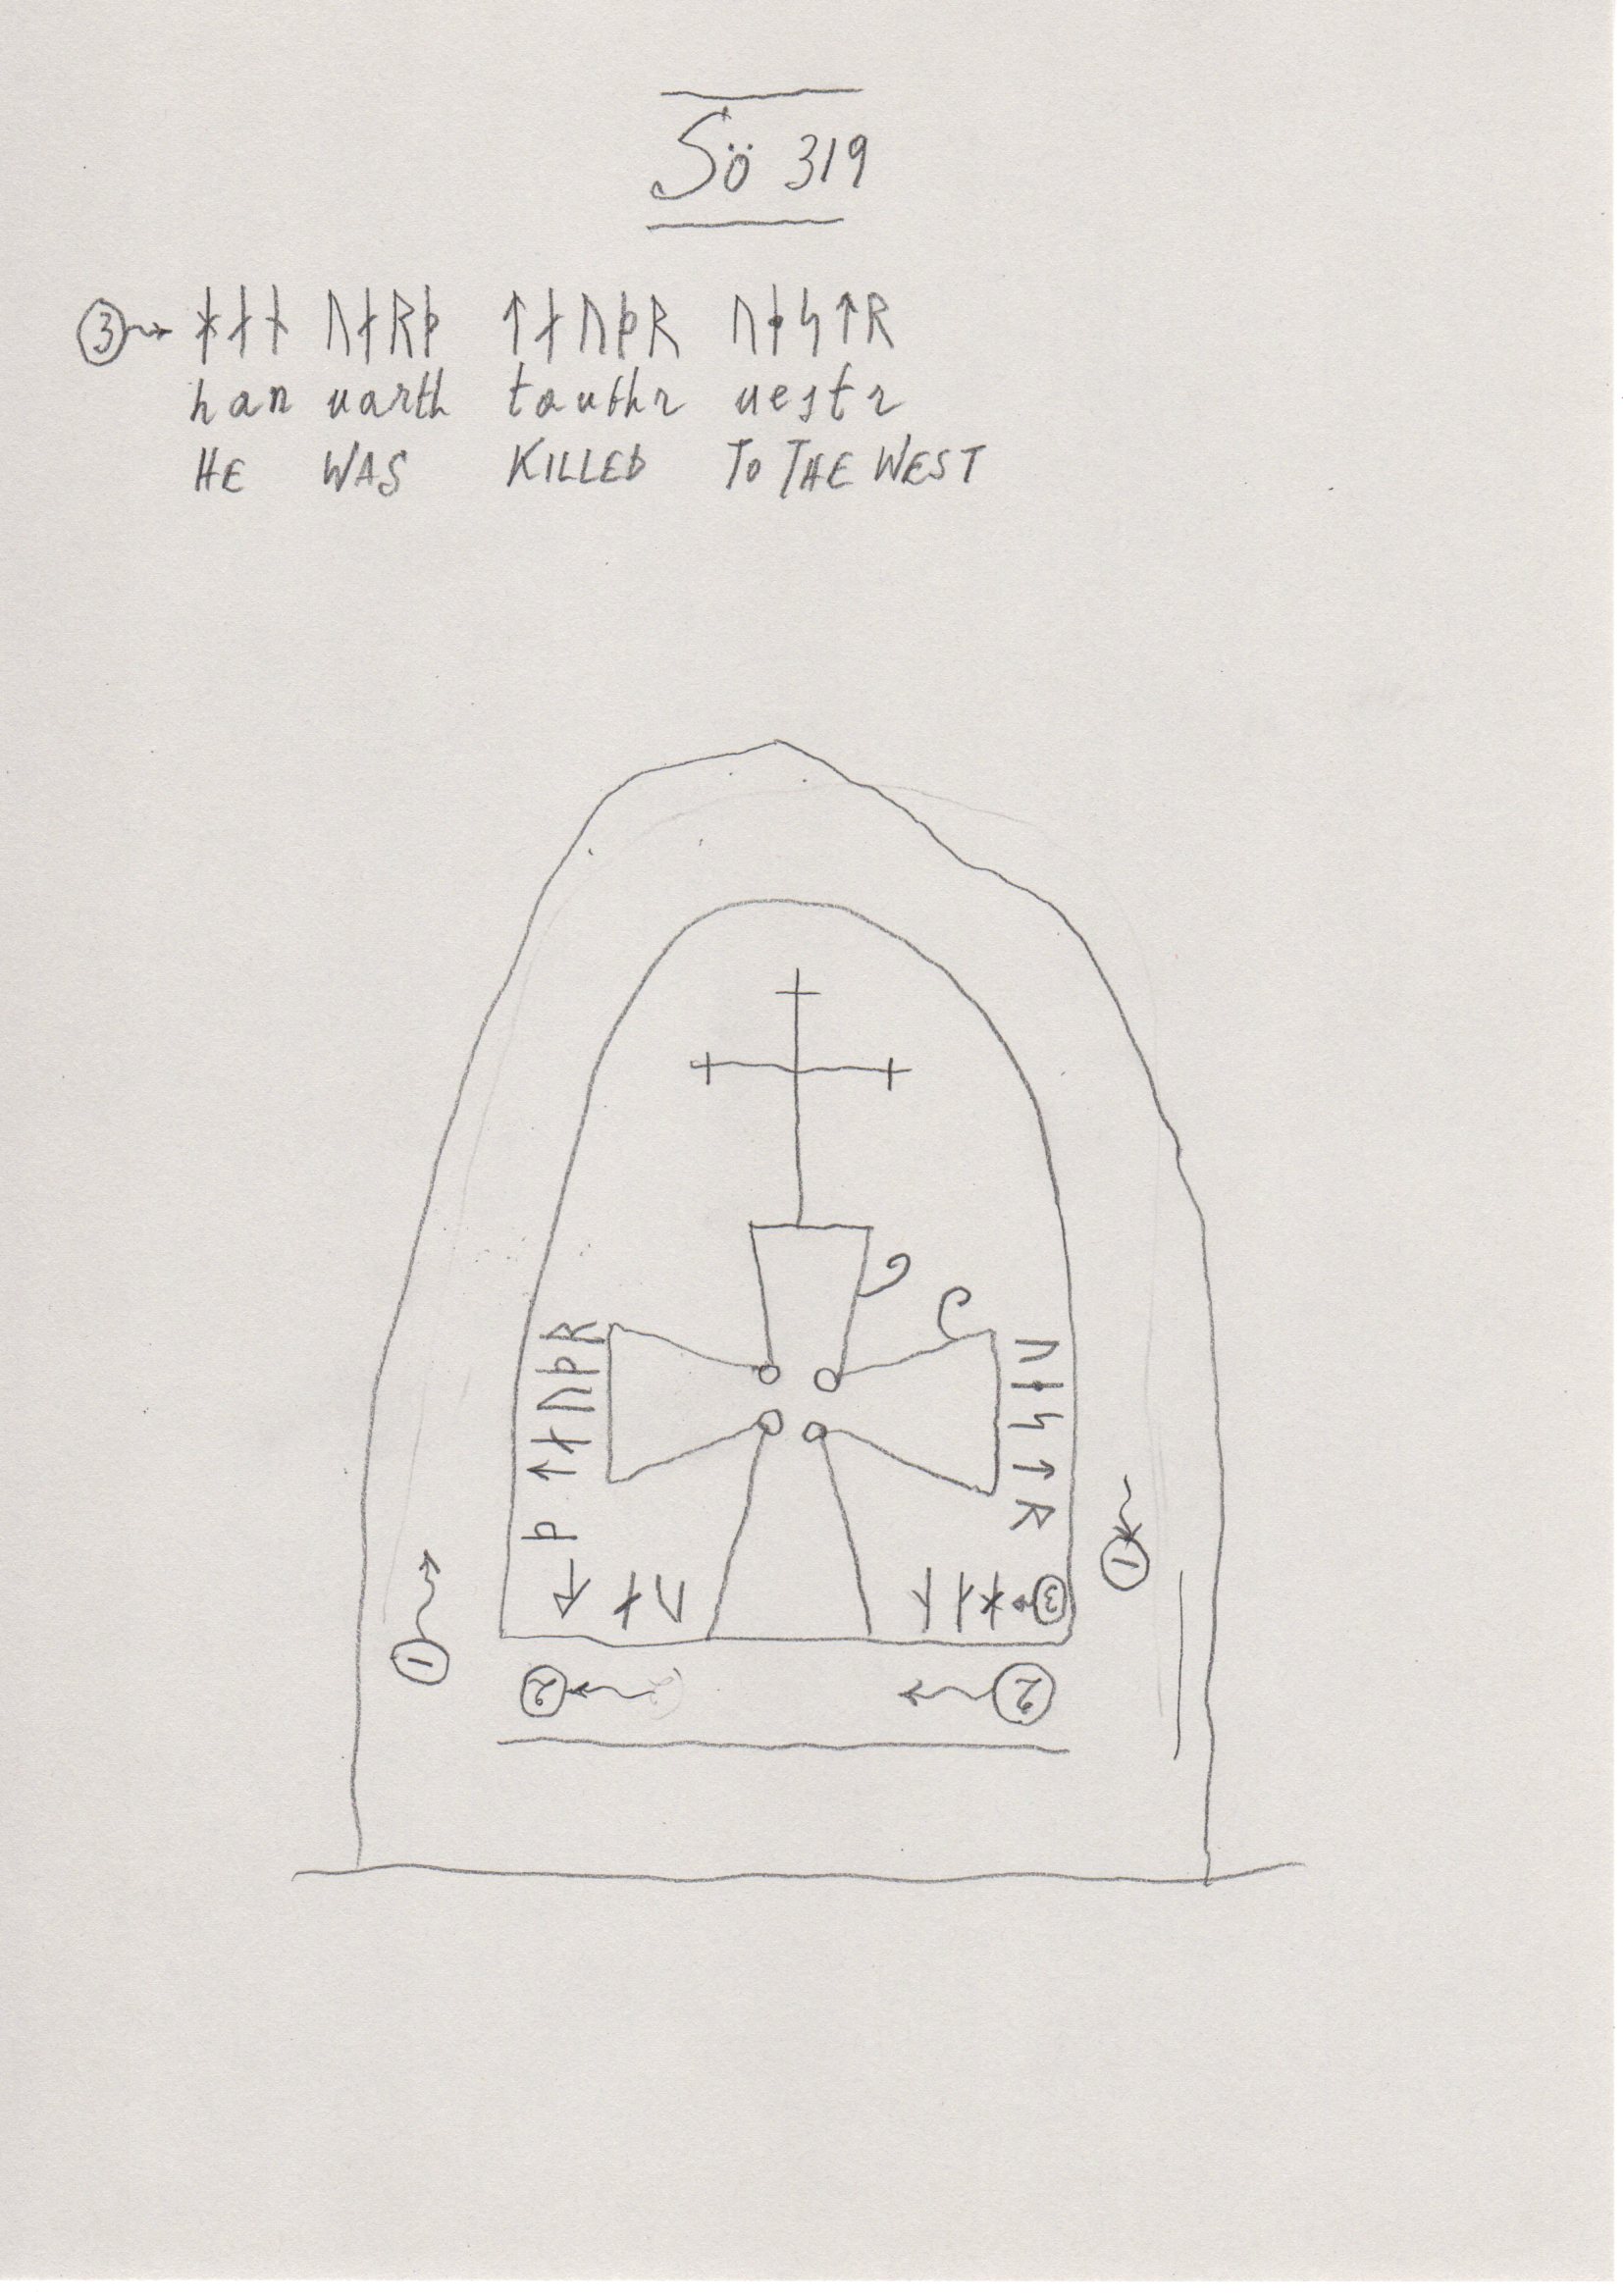 Sö 319
③ ᚼᛅᚾ ᚢᛅᚱᚦ ᛏᛅᚢᚦᚱ ᚢᛂᛋᛏᚱ
han uarth tauthr uestr
HE WAS KILLED TO THE WEST
ᚦ ᛏᛅᚢᚦᚱ
ᚢᛂᛋᛏᚱ
①
①
ᚢᛅ
③ ᚼᛅᚾ
②
②